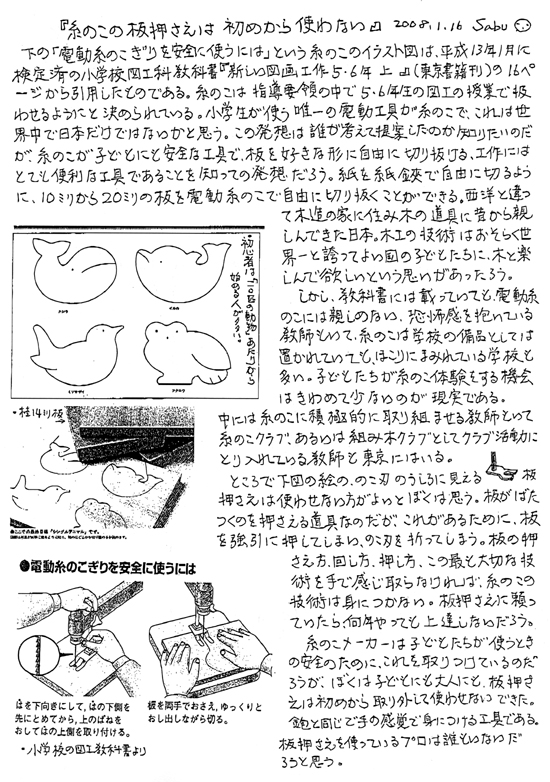 『糸のこの板押さえは 初めから使わない』 2008.1.16 Sabu
下の「電動糸のこぎりを安全に使うには」という糸のこのイラスト図は、平成13年1月に
検定済の小学校図工科教科書『新しい図画工作5・6年 上』(東京書籍刊)の16ペ
ージから引用したものである。糸のこは 指導要領の中で5・6年生の図工の授業で扱
わせるようにと決められている。小学生が使う唯一の電動工具が糸のこで、これは世
界中で日本だけではないかと思う。この発想は誰が考えて提案したのか知りたいのだ
が、糸のこが子どもにも安全な工具で、板を好きな形に自由に切り抜ける、工作には
とても便利な工具であることを知っての発想だろう。紙を紙鋏で自由に切るよう
に、10ミリから20ミリの板を電動糸のこで自由に切り抜くことができる。西洋と違っ
て木造の家に住み木の道具に昔から親
しんできた日本。木工の技術はおそらく世
界一と誇ってよい国の子どもたちに、木と楽
しんで欲しいという思いがあったろう。
しかし、教科書には載っていても、電動糸
のこには親しめない、恐怖感を抱いている
教師もいて、糸のこは学校の備品としては
置かれていても、ほこりにまみれている学校も
多い。子どもたちが糸のこ体験をする機会
はきわめて少ないのが現実である。
中には糸のこに積極的に取り組ませる教師もいて
糸のこクラブ、あるいは組み木クラブとしてクラブ活動に
とり入れている教師も東京にはいる。
ところで下図の絵の、のこ刃のうしろに見える 板
押さえは使わせない方がよいとぼくは思う。板がばた
つくのを押さえる道具なのだが、これがあるために、板
を強引に押してしまい、のこ刃を折ってしまう。板の押
さえ方、回し方、押し方、この最も大切な技
術を手で感じ取らなければ、糸のこの
技術は身につかない。板押さえに頼っ
ていたら何年やっても上達しないだろう。
糸のこメーカーは子どもたちが使うとき
の安全のために、これを取りつけているのだ
ろうが、ぼくは子どもにも大人にも、板押さ
えは初めから取り外して使わせないできた。
鉋と同じで手の感覚で身につける工具である。
板押さえを使っているプロは誰もいないだ
ろうと思う。
初心者は「10匹の動物」あたりから
始める人が多い。
アシカ
イルカ
ミソサザイ
フクロウ
・桂14ミリ板
●電動糸のこぎりを安全に使うには
はを下向きにして、はの下側を
先にとめてから、上のばねを
おしてはの上側を取り付ける。
板を両手でおさえ、ゆっくりと
おし出しながら切る。
・小学校の図工教科書より